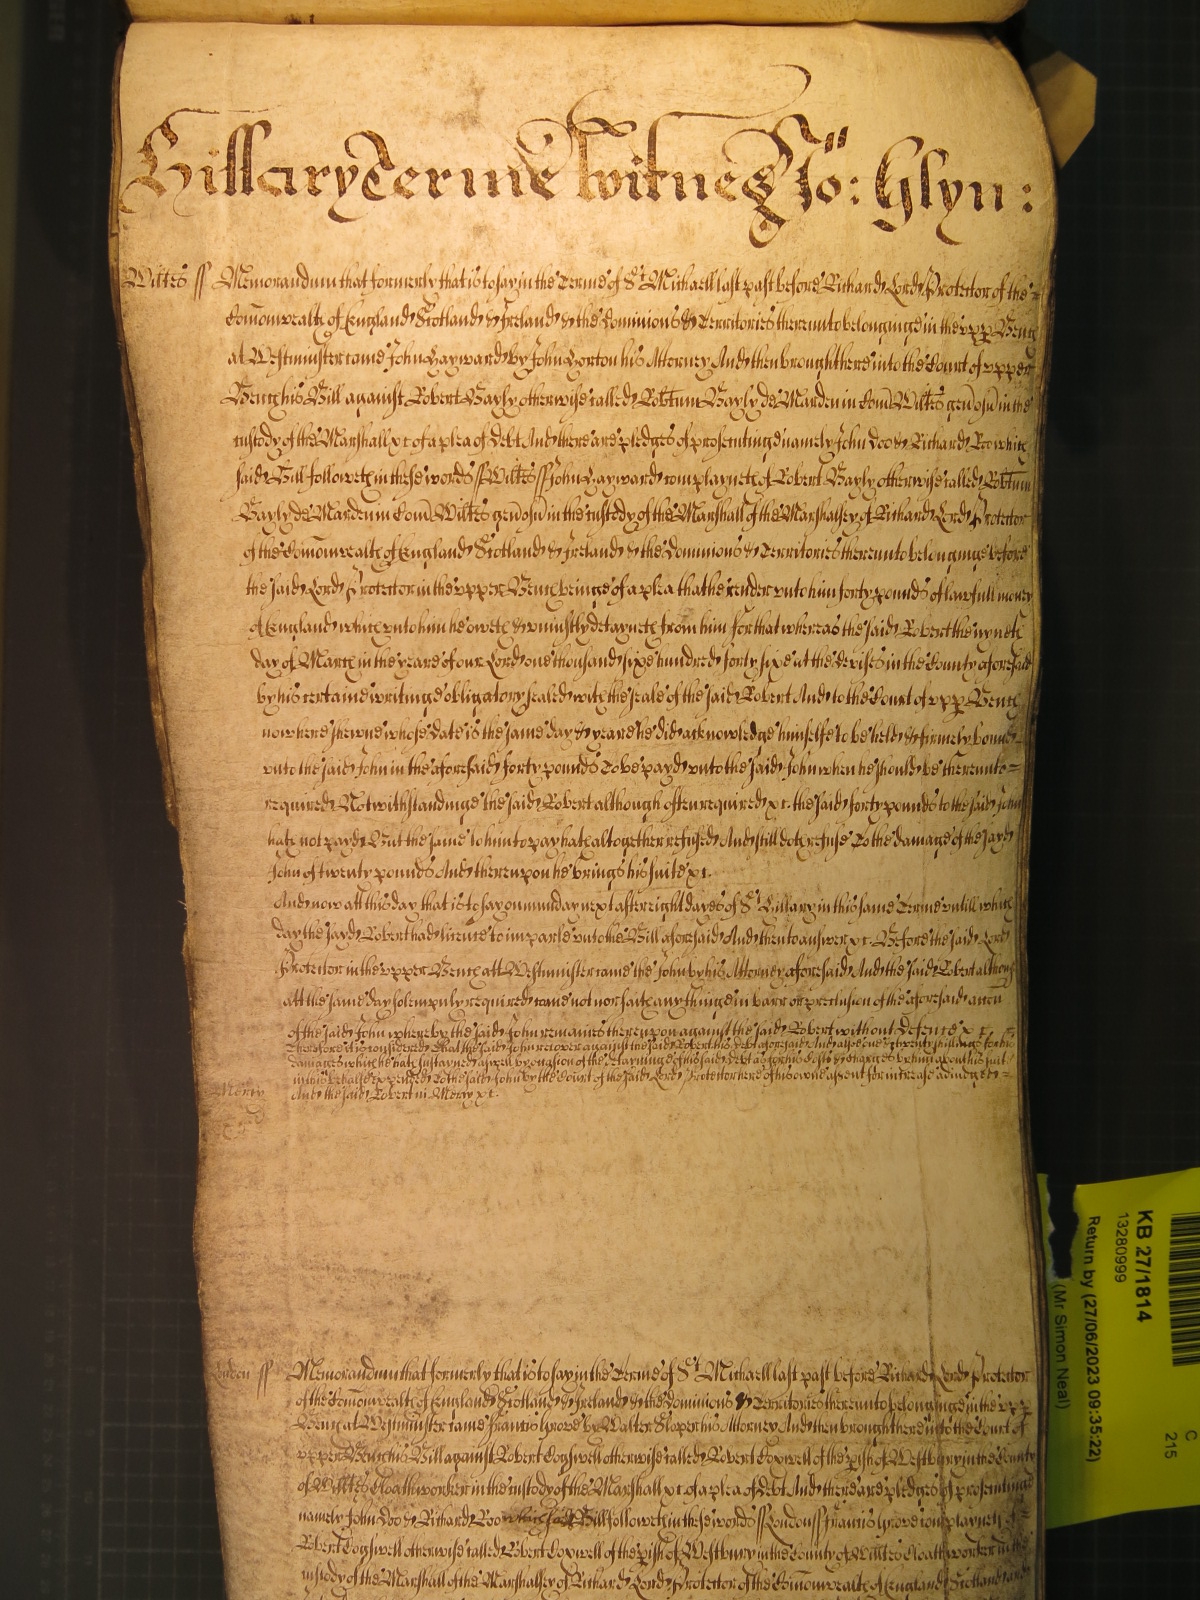 Hillary Terme Witnes Jo: Glyn:
Wiltes ss Memorandum that formerly that is to say in the Terme of St Michaell last past before Richard Lord Protector of the
Comonwealth of England Scotland & Ireland & the Dominions & Territories thereunto belonginge in the upp Bench
at Westminster came John Hayward by John Horton his Attorney And then brought here into the Court of upper
Bench his Bill against Robert Bayly otherwise called Robtum Bayly de Marden in Com Wiltes genosu in the
custody of the Marshall xc of a plea of Debt And there are pledges of prosecutinge namely John Doo & Richard Roo which
said Bill followeth in these words ss Wiltes ss John Hayward complayneth of Robert Bayly otherwise called Robtum
Bayly de Marden in Com Wiltes genosu in the custody of the Marshall of the Marshalsey of Richard Lord Protector
of the Comonwealth of England Scotland & Ireland & the Dominions & Territories thereunto belonginge before
the said Lord Protector in the upper Bench beinge of a plea that he render unto him forty pounds of lawfull money
of England which unto him he oweth & uniustly detayneth from him For that whereas the said Robert the nyneth
day of March in the yeare of our Lord one thousand sixe hundred forty sixe at the Devises in the County aforesaid
by his certaine writinge obligatory sealed with the seale of the said Robert And to the Court of upp Bench
now here shewne whose date is the same day & yeare he did acknowledge himselfe to be held & firmely bound
unto the said John in the aforesaid forty pounds To be payd unto the said John when he should be thereunto
required Notwithstandinge the said Robert although often required xc. the said forty pounds to the said John
hath not payd But the same to him to pay hath altogether refused And still doth refuse To the damage of the sayd
John of twenty pounds And thereupon he brings his suite xc.
And now at this day that is to say on munday next after eight dayes of St Hillary in this same Terme untill which
day the sayd Robert had licence to imparle unto the Bill aforesaid And then to answer xc. Before the said Lord
Protector in the upper Bench att Westminster came the John by his Attorney aforesaid And the said Robert although
att the same day solempnly required came not nor saith any thinge in barr or preclusion of the aforesaid accon
of the said John whereby the said John remaines thereupon against the said Robert without Defence xc.
Therefore it is considered That the said John recover against the said Robert his debt aforesaid And alsoe one & twenty shillings for his
damages which he hath sustayned aswell by occasion of the detayninge of his said Debt as for his costs & charges by him about his suit
in this behalfe expended To the said John by the Court of the said Lord Protector here of his owne assent for increase adiudged
Mercy And the said Robert in Mercy xc.
London ss Memorandum that formerly that is to say in the Terme of St Michaell last past before Richard Lord Protector
of the Comonwealth of England Scotland & Ireland & the Dominions & Territories thereunto belonginge in the upp
Bench at Westminster came Francis Grove by Walter Sloper his Attorney And then brought here into the Court of
upper Bench his Bill against Robert Cogswell otherwise called Robert Coxwell of the pish of Westbury in the County
of Wiltes Cloathworker in the custody of the Marshall xc of a plea of Debt And there are pledges of prosecutinge
namely John Doo & Richard Roo which said Bill followeth in these words ss London ss Francis Grove complayneth of
Robert Cogswell otherwise called Robert Coxwell of the pish of Westbury in the County of Wiltes Cloathworker in the
custody of the Marshall of the Marshalsey of Richard Lord Protector of the Comonwealth of England Scotland and
KB 27/1814
13280999
Return by (27/06/2023 09:35:22)
(Mr Simon Neal)
C
215